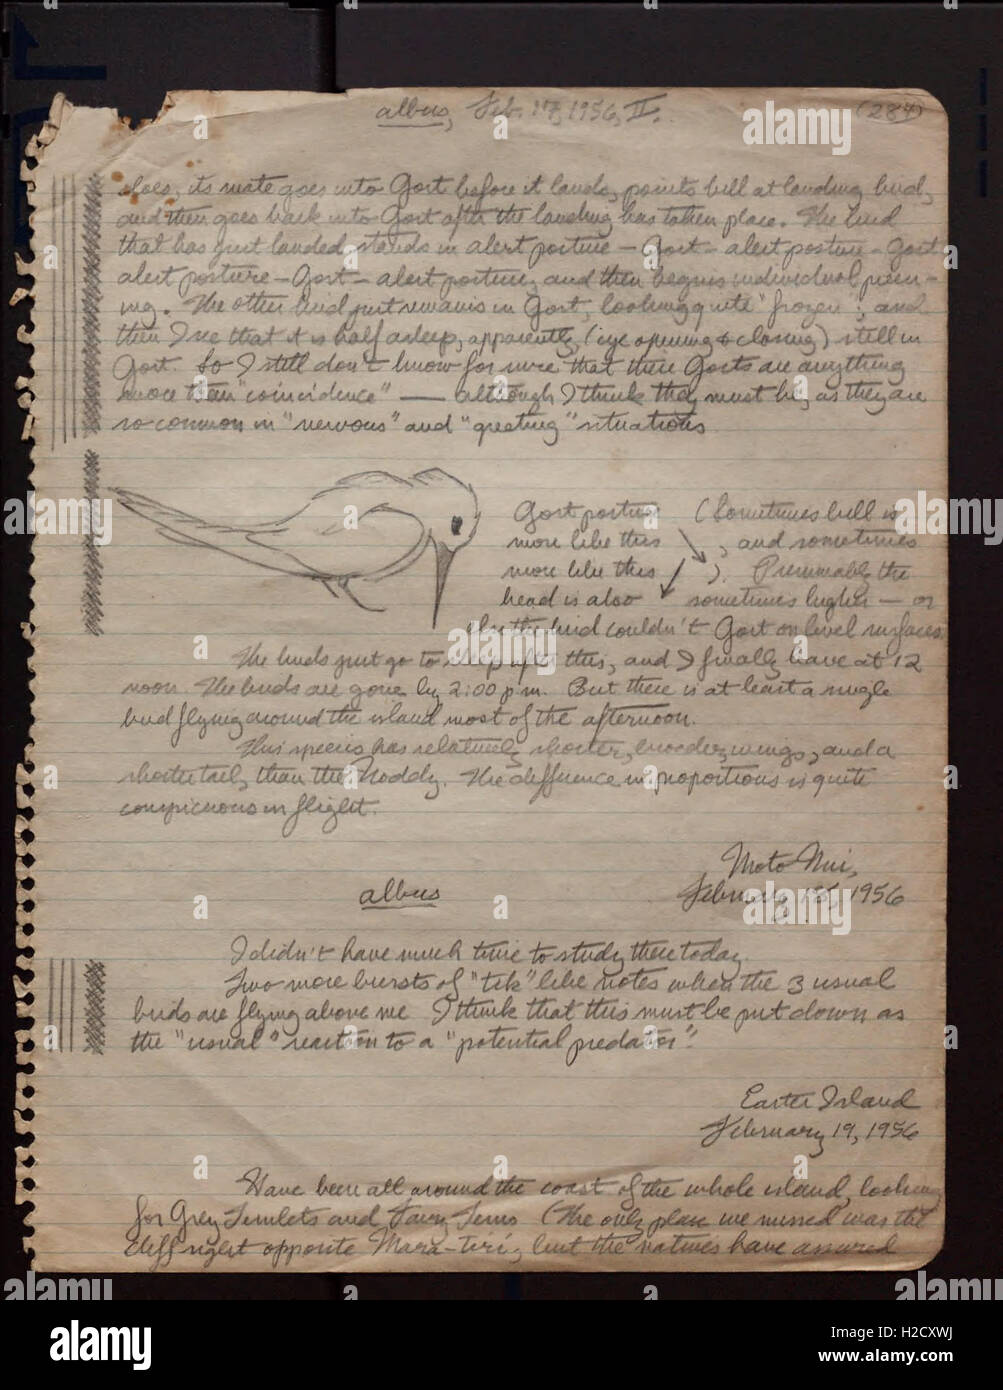 albus, Feb. 17, 1956, II.
(284)
does, its mate goes into Gort before it lands, points bill at landing bird,
and then goes back into Gort after the landing has taken place. The bird
that has just landed stands in alert posture – Gort – alert posture – Gort
alert posture – Gort – alert posture, and then begins individual preen-
ing. The other bird just remains in Gort, looking quite "frozen", and
then I see that it is half asleep, apparently, (eye opening & closing) still in
Gort. So I still don't know for sure that these Gorts are anything
more than "coincidence" — although I think they must be, as they are
so common in "nervous" and "greeting" situations.
Gort posture (Sometimes bill is
more like this , and sometimes
more like this ). Presumably the
head is also sometimes higher — or
else the bird couldn't Gort on level surfaces.
The birds just go to sleep after this, and I finally leave at 12
noon. The birds are gone by 2:00 p.m. But there is at least a single
bird flying around the island most of the afternoon.
This species has relatively shorter, broader, wings, and a
shorter tail, than the Noddy. The difference in proportions is quite
conspicuous in flight.
Moto Nui,
albus
February 18, 1956
I didn't have much time to study these today.
Two more bursts of "tik" like notes when the 3 usual
birds are flying above me. I think that this must be put down as
the "usual" reaction to a "potential predator".
Easter Island
February 19, 1956
Have been all around the coast of the whole island, looking
for Grey Ternlets and Fairy Terns (The only place we missed was the
cliff right opposite Mara-tiri, but the natives have assured
alamy
a
alamy
Image ID: H2CXWJ
www.alamy.com